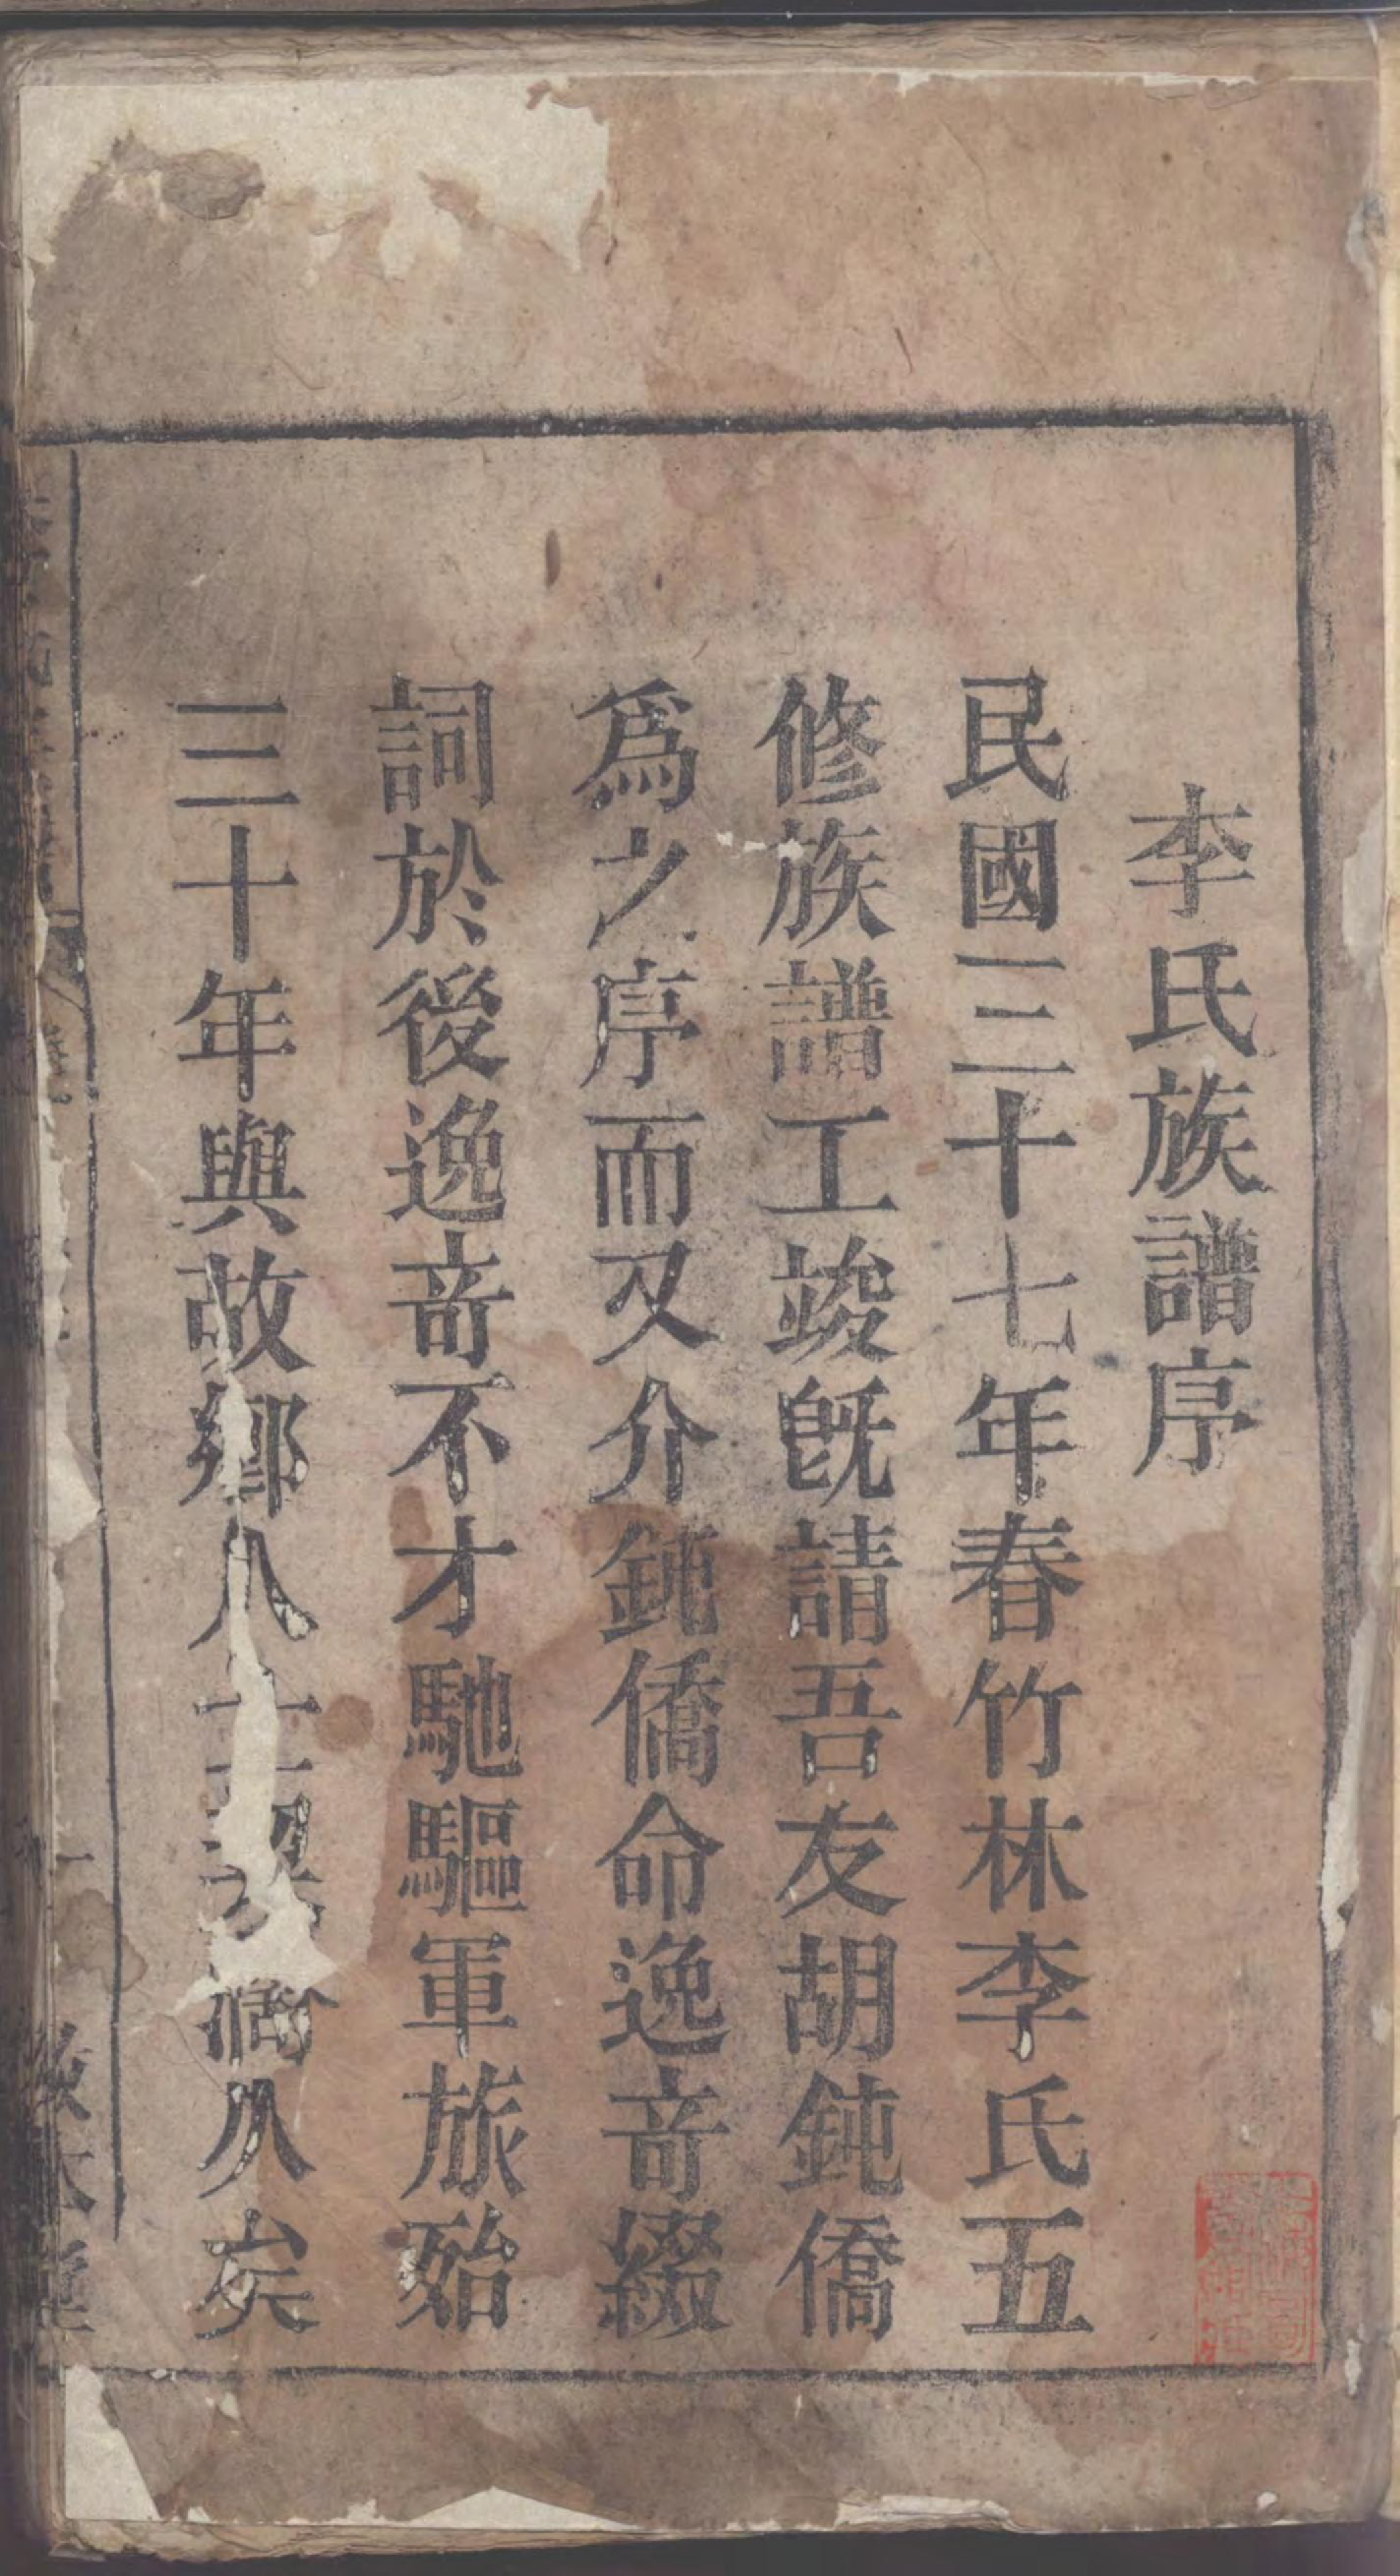 李氏族譜序
民國三十七年春竹林李氏五
修族譜工竣既請吾友胡鈍僑
為之序而又介鈍僑命逸咅綴
詞於後逸咅不才馳驅軍旅殆
三十年與故鄉人士契濶久矣